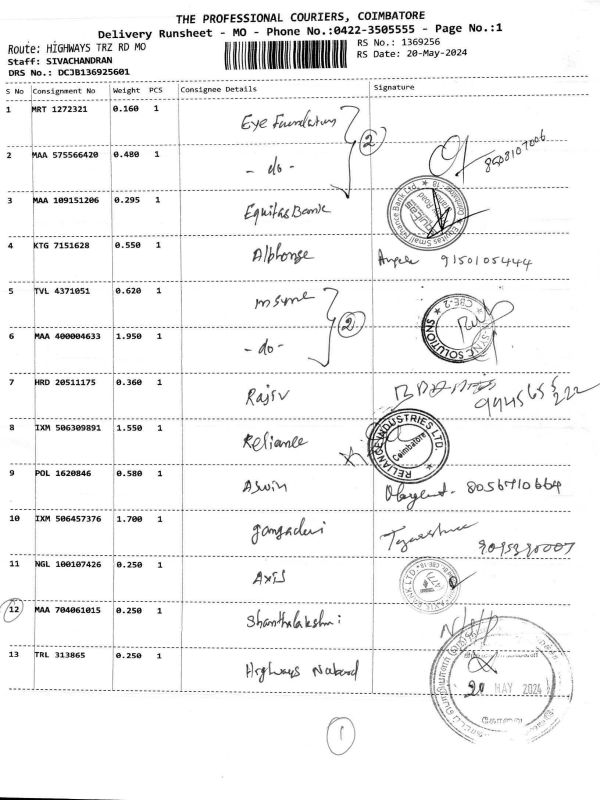 THE PROFESSIONAL COURIERS, COIMBATORE
Delivery Runsheet - MO - Phone No.:0422-3505555 - Page No.:1
Route: HIGHWAYS TRZ RD MO
RS No.: 1369256
Staff: SIVACHANDRAN
RS Date: 20-May-2024
DRS No.: DCJB136925601
S No Consignment No Weight PCS Consignee Details Signature
1 MRT 1272321 0.160 1 Eye Foundation
2 MAA 575566420 0.480 1 - do - 2
3 MAA 109151206 0.295 1 Equitas Bank
4 KTG 7151628 0.550 1 Alphonse 9150105444
5 TVL 4371051 0.620 1 msync CBE-2
6 MAA 400004633 1.950 1 - do - 2 SYNC SOLUTIONS
7 HRD 20511175 0.360 1 Rajiv
8 IXM 506309891 1.550 1 Reliance RELIANCE INDUSTRIES LTD. Coimbatore
9 POL 1620846 0.580 1 Aswin 8056710664
10 IXM 506457376 1.700 1 gangadevi
11 NGL 100107426 0.250 1 Axis
12 MAA 704061015 0.250 1 Shanthalakshmi
13 TRL 313865 0.250 1 Highways Nabard
20 MAY 2024
கோவை
1